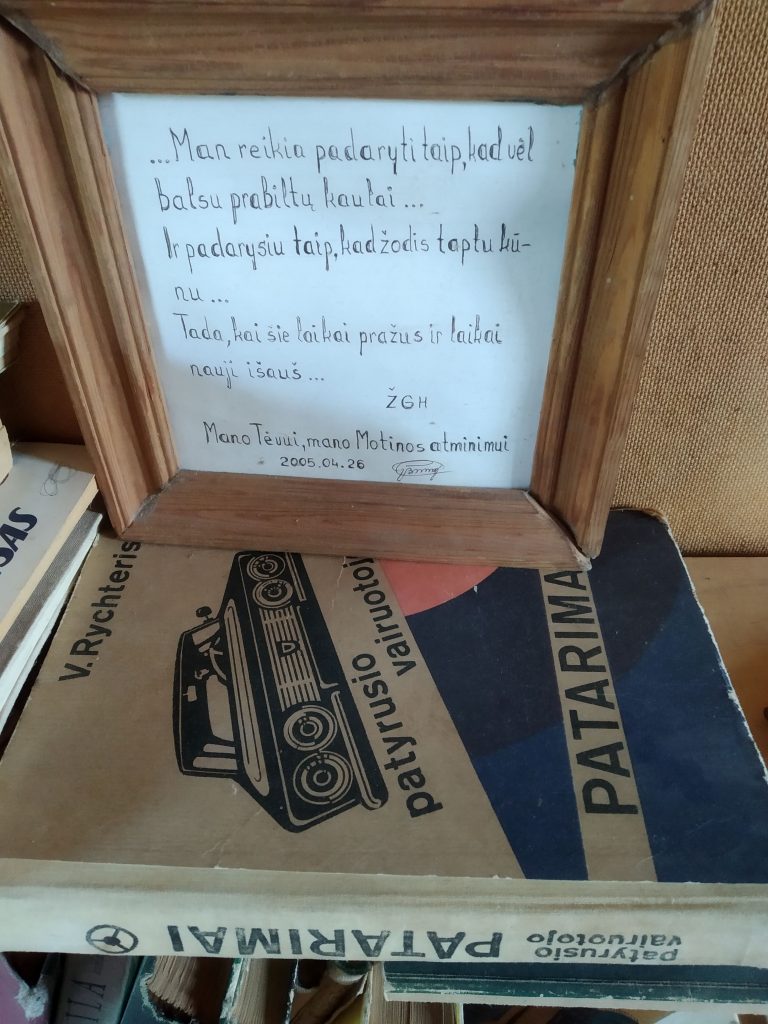 ...Man reikia padaryti taip, kad vėl
balsu prabiltų kaulai...
Ir padarysiu taip, kad žodis taptu kū-
nu...
Tada, kai šie laikai pražus ir laikai
nauji išauš...
ŽGH
Mano Tėvui, mano Motinos atminimui
2005.04.26
SAS
V. Rychteris
patyrusio
vairuotoj
PATARIMA
patyrusio
vairuotojo
PATARIMAI
ILA